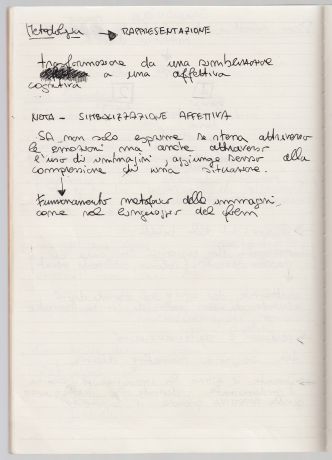 Metodologia → RAPPRESENTAZIONE
trasformazione da una simbolizzazione
cognitiva a una affettiva
NOTA - SIMBOLIZZAZIONE AFFETTIVA
SA non solo esprime se stessa attraverso
le emozioni ma anche attraverso
l'uso di immagini, aggiunge senso alla
comprensione di una situazione.
Funzionamento metaforico delle immagini,
come nel linguaggio dei film